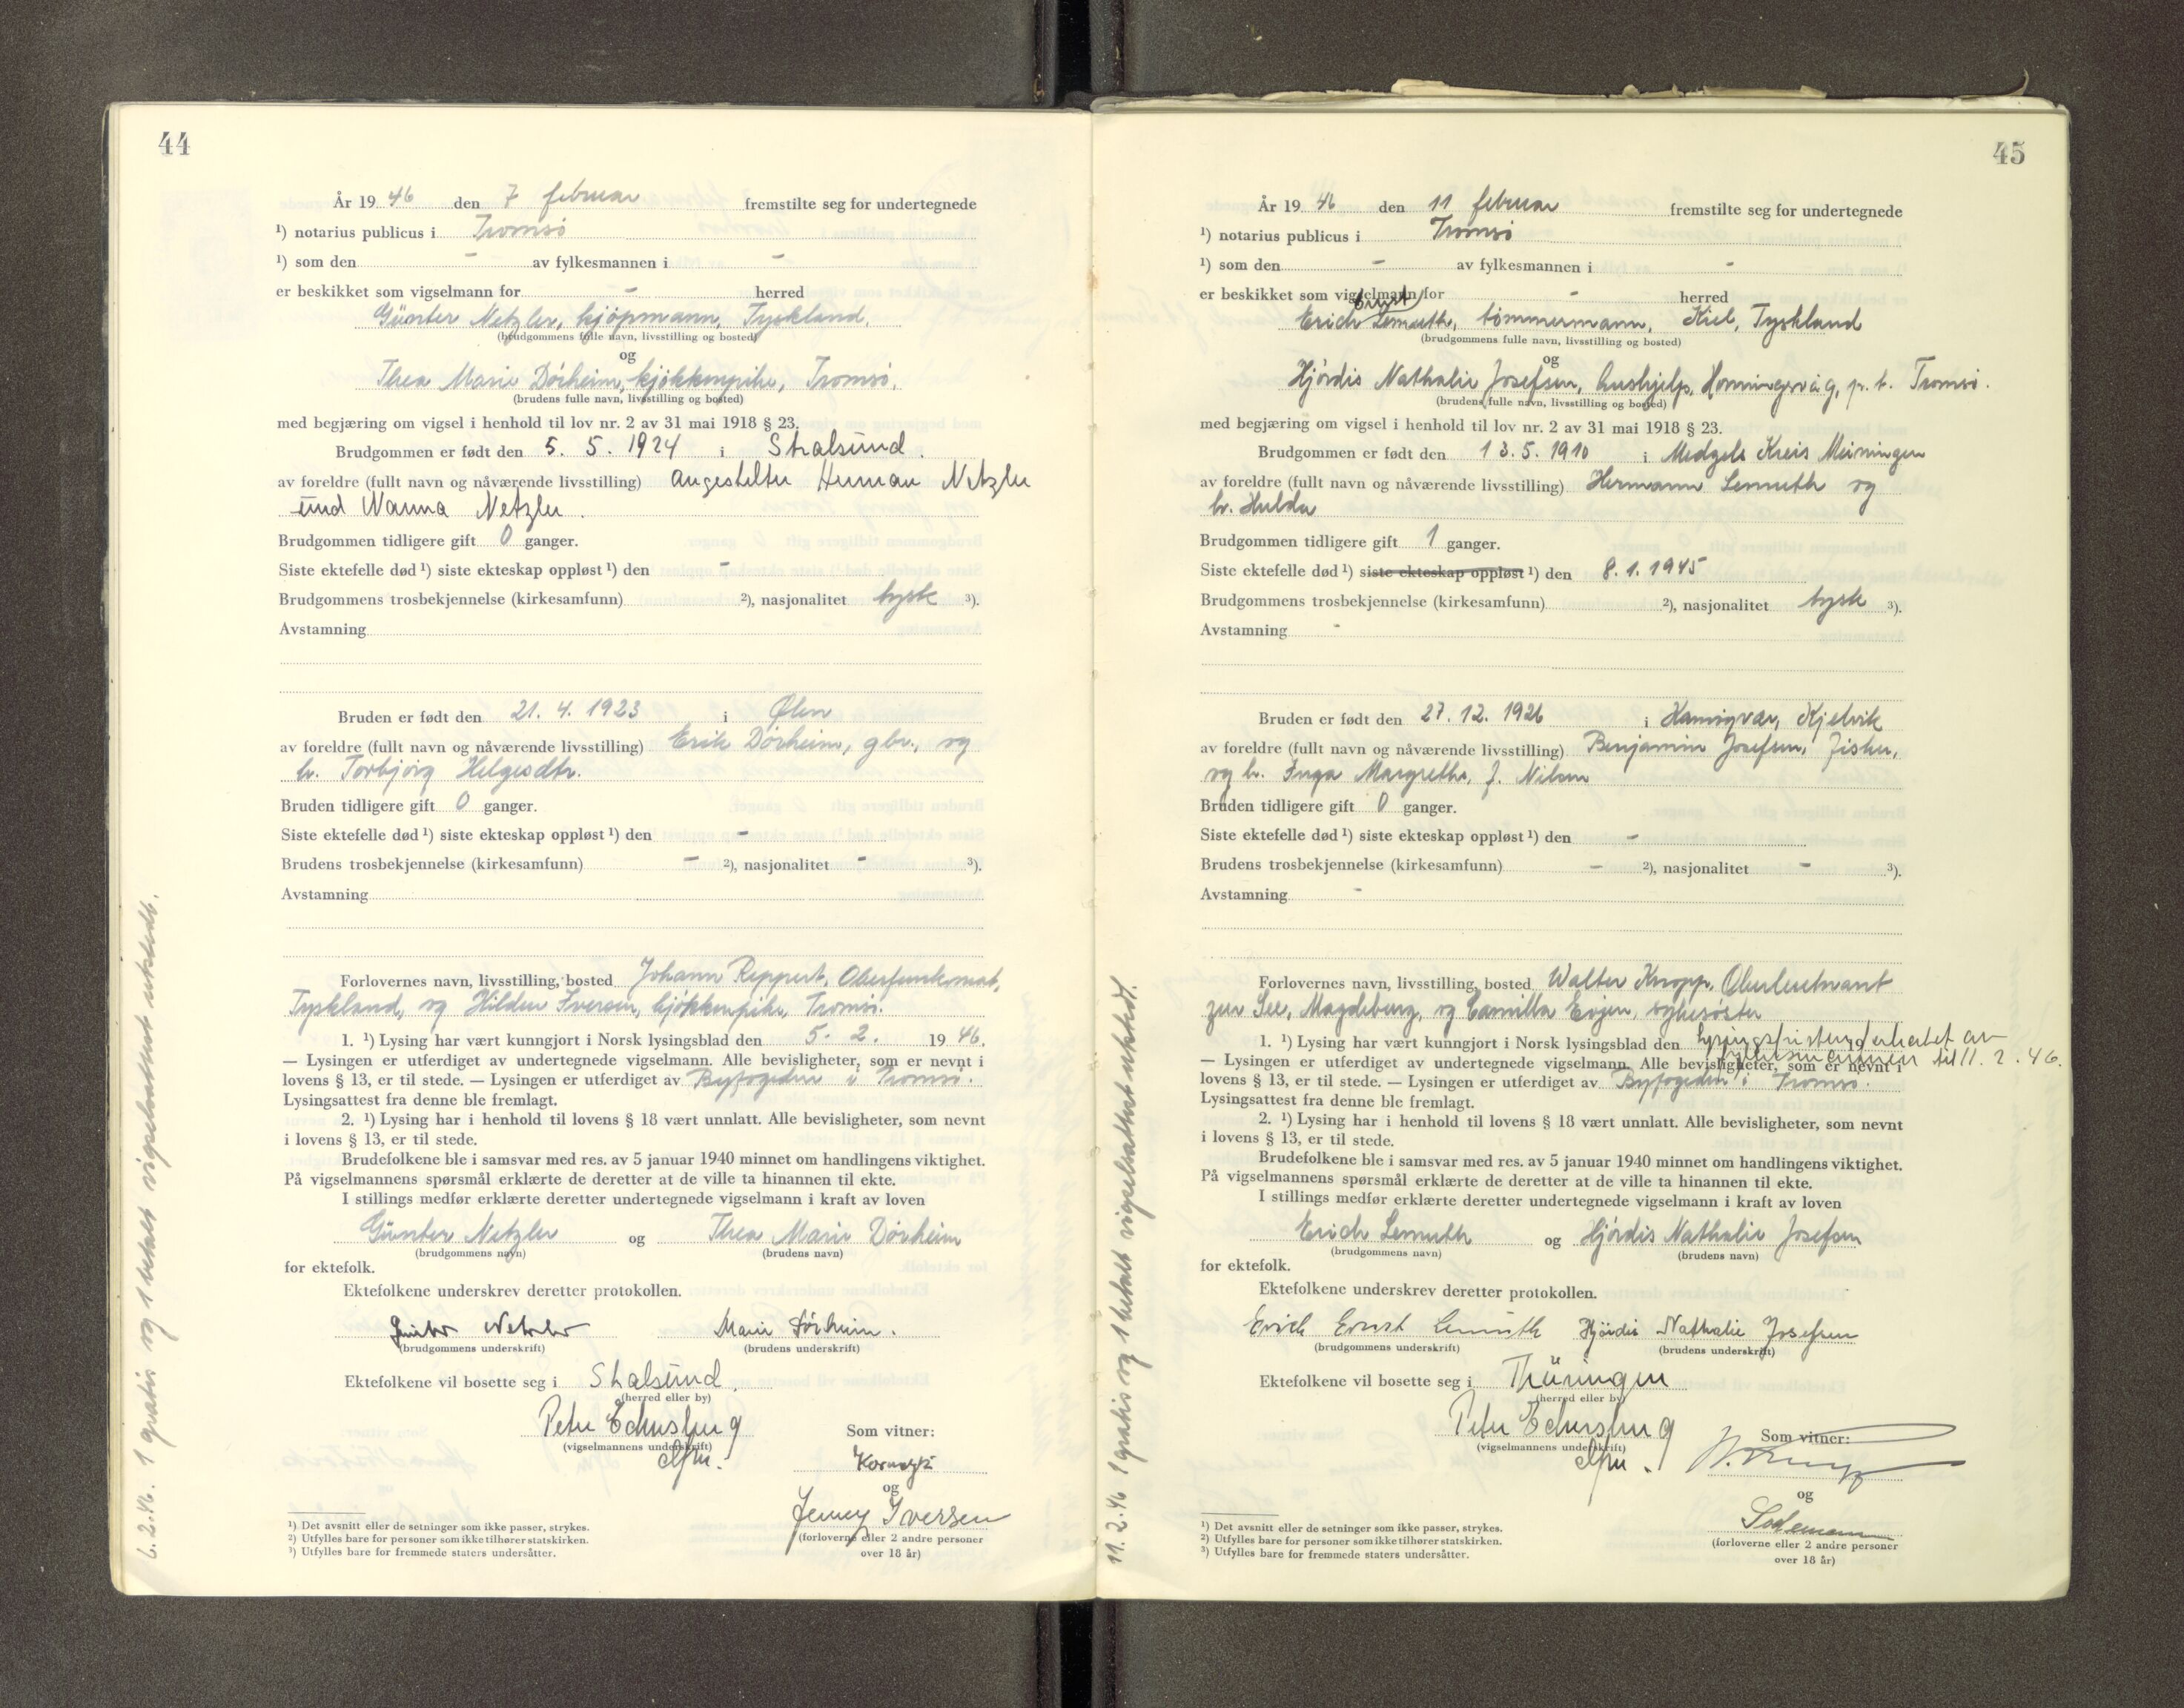 44
År 19 46 den 7 februar fremstilte seg for undertegnede
¹) notarius publicus i Tromsø
¹) som den - av fylkesmannen i -
er beskikket som vigselmann for - herred
Günter Netzler, kjøpmann, Tyskland.
(brudgommens fulle navn, livsstilling og bosted)
og
Thea Marie Dörheim, kjøkkenpike, Tromsø.
(brudens fulle navn, livsstilling og bosted)
med begjæring om vigsel i henhold til lov nr. 2 av 31 mai 1918 § 23.
Brudgommen er født den 5. 5. 1924 i Stralsund.
av foreldre (fullt navn og nåværende livsstilling) Angestellter Herman Netzler
und Wanna Netzler.
Brudgommen tidligere gift 0 ganger.
Siste ektefelle død ¹) siste ekteskap oppløst ¹) den -
Brudgommens trosbekjennelse (kirkesamfunn) ²), nasjonalitet tysk ³).
Avstamning
Bruden er født den 21. 4. 1923 i Ølen
av foreldre (fullt navn og nåværende livsstilling) Erik Dörheim, gbr., og
h. Torbjørg Helgesdtr.
Bruden tidligere gift 0 ganger.
Siste ektefelle død ¹) siste ekteskap oppløst ¹) den -
Brudens trosbekjennelse (kirkesamfunn) - ²), nasjonalitet - ³).
Avstamning
Forlovernes navn, livsstilling, bosted Johann Reppert, Oberfunkmat,
Tyskland, og Hildur Iversen, kjøkkenpike, Tromsø.
1. ¹) Lysing har vært kunngjort i Norsk lysingsblad den 5. 2. 19 46.
— Lysingen er utferdiget av undertegnede vigselmann. Alle bevisligheter, som er nevnt i
lovens § 13, er til stede. — Lysingen er utferdiget av Byfogden i Tromsø.
Lysingsattest fra denne ble fremlagt.
2. ¹) Lysing har i henhold til lovens § 18 vært unnlatt. Alle bevisligheter, som nevnt
i lovens § 13, er til stede.
Brudefolkene ble i samsvar med res. av 5 januar 1940 minnet om handlingens viktighet.
På vigselmannens spørsmål erklærte de deretter at de ville ta hinannen til ekte.
I stillings medfør erklærte deretter undertegnede vigselmann i kraft av loven
Günter Netzler og Thea Marie Dörheim
(brudgommens navn) (brudens navn)
for ektefolk.
Ektefolkene underskrev deretter protokollen.
Günter Netzler Marie Dörheim.
(brudgommens underskrift) (brudens underskrift)
Ektefolkene vil bosette seg i Stralsund.
(herred eller by)
Peter
(vigselmannens underskrift)
Som vitner:
og
Jenny Iversen
(forloverne eller 2 andre personer
over 18 år)
¹) Det avsnitt eller de setninger som ikke passer, strykes.
²) Utfylles bare for personer som ikke tilhører statskirken.
³) Utfylles bare for fremmede staters undersåtter.
6.2.46. 1 gratis og 1 betalt vigselsattest utstedt.
45
År 19 46 den 11 februar fremstilte seg for undertegnede
¹) notarius publicus i Tromsø
¹) som den - av fylkesmannen i -
er beskikket som vigselmann for - herred
Erich Ernst Lemuth, tømmermann, Kiel, Tyskland
(brudgommens fulle navn, livsstilling og bosted)
og
Hjördis Nathalie Josefsen, hushjelp, Honningsvåg, p. t. Tromsø.
(brudens fulle navn, livsstilling og bosted)
med begjæring om vigsel i henhold til lov nr. 2 av 31 mai 1918 § 23.
Brudgommen er født den 13. 5. 1910 i Medgels Kreis Meiningen
av foreldre (fullt navn og nåværende livsstilling) Hermann Lemuth og
h. Hulda
Brudgommen tidligere gift 1 ganger.
Siste ektefelle død ¹) siste ekteskap oppløst ¹) den 8. 1. 1945
Brudgommens trosbekjennelse (kirkesamfunn) ²), nasjonalitet tysk ³).
Avstamning -
Bruden er født den 27. 12. 1926 i Kjelvik
av foreldre (fullt navn og nåværende livsstilling) Benjamin Josefsen, fisker,
og h. Inga Margrethe, f. Nilsen
Bruden tidligere gift 0 ganger.
Siste ektefelle død ¹) siste ekteskap oppløst ¹) den -
Brudens trosbekjennelse (kirkesamfunn) - ²), nasjonalitet - ³).
Avstamning -
Forlovernes navn, livsstilling, bosted Walter Knopp, Oberleutnant
zur See, Magdeburg, og Camilla Evjen, sykesøster
1. ¹) Lysing har vært kunngjort i Norsk lysingsblad den Lysingsfristen 19 av
— Lysingen er utferdiget av undertegnede vigselmann. Alle bevisligheter, som er nevnt i til 11. 2. 46.
lovens § 13, er til stede. — Lysingen er utferdiget av Byfogden i Tromsø.
Lysingsattest fra denne ble fremlagt.
2. ¹) Lysing har i henhold til lovens § 18 vært unnlatt. Alle bevisligheter, som nevnt
i lovens § 13, er til stede.
Brudefolkene ble i samsvar med res. av 5 januar 1940 minnet om handlingens viktighet.
På vigselmannens spørsmål erklærte de deretter at de ville ta hinannen til ekte.
I stillings medfør erklærte deretter undertegnede vigselmann i kraft av loven
Erich Lemuth og Hjördis Nathalie Josefsen
(brudgommens navn) (brudens navn)
for ektefolk.
Ektefolkene underskrev deretter protokollen.
Erich Ernst Lemuth Hjördis Nathalie Josefsen
(brudgommens underskrift) (brudens underskrift)
Ektefolkene vil bosette seg i Thüringen
(herred eller by)
Peter
(vigselmannens underskrift)
Som vitner:
og
(forloverne eller 2 andre personer
over 18 år)
¹) Det avsnitt eller de setninger som ikke passer, strykes.
²) Utfylles bare for personer som ikke tilhører statskirken.
³) Utfylles bare for fremmede staters undersåtter.
11.2.46 1 gratis og 1 betalt vigselsattest utstedt.